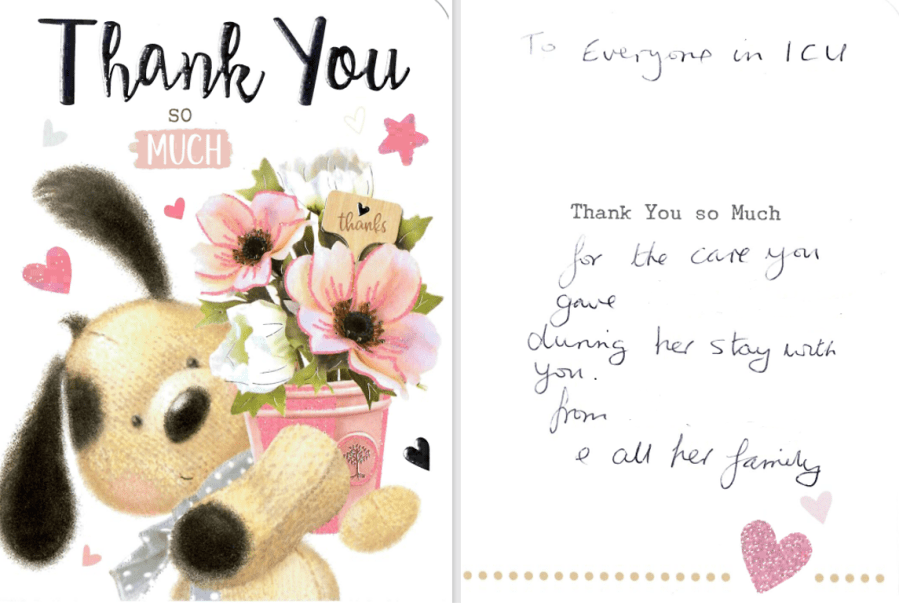 Thank You
so
MUCH
thanks
To Everyone in ICU
Thank You so Much
for the care you
gave
during her stay with
you.
from
e all her family